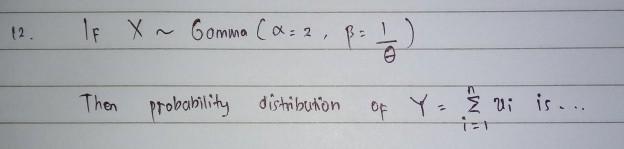 12. IF X ~ Gamma (α = 2, β = 1/θ)
Then probability distribution of Y = Σ_{i=1}^{n} xi is ...